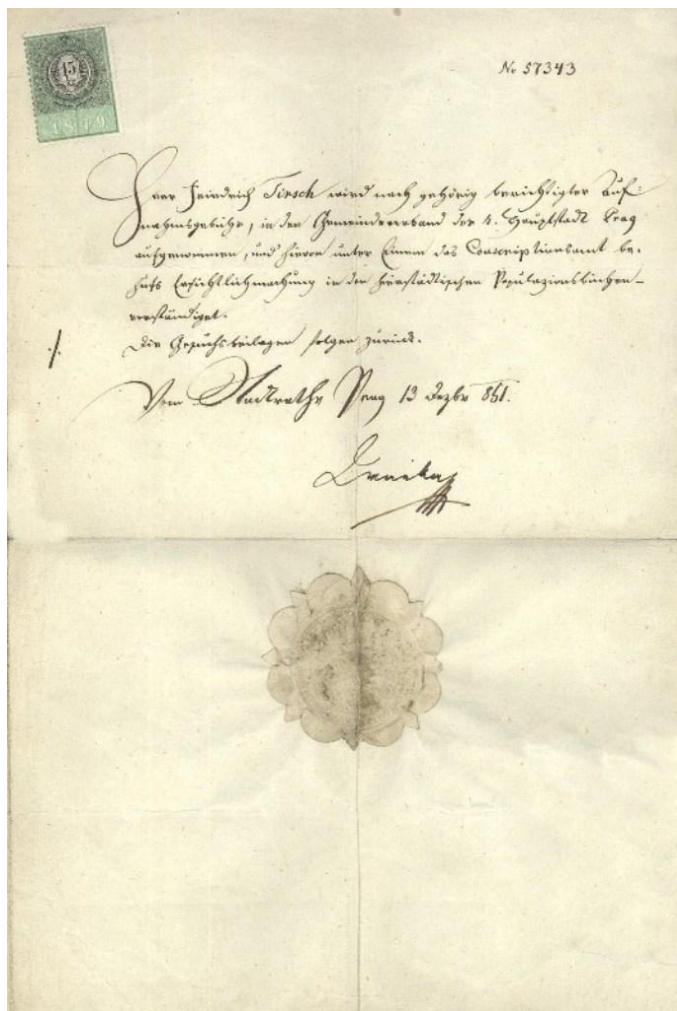 15
1879
No 57343
Herr Friedrich Tirsch wird nach gehörig berichtigter Auf-
nahmsgebühr, in den Gemeindeverband der k. Hauptstadt Prag
aufgenommen, und hievon unter Einem das Conscriptionsamt be-
hufs Ersichtlichmachung in den hierstädtischen Populazionsbüchern
verständiget.
./.
Die Gesuchsbeilagen folgen zurück.
Vom Stadtrathe Prag 13 Dezbr 861.